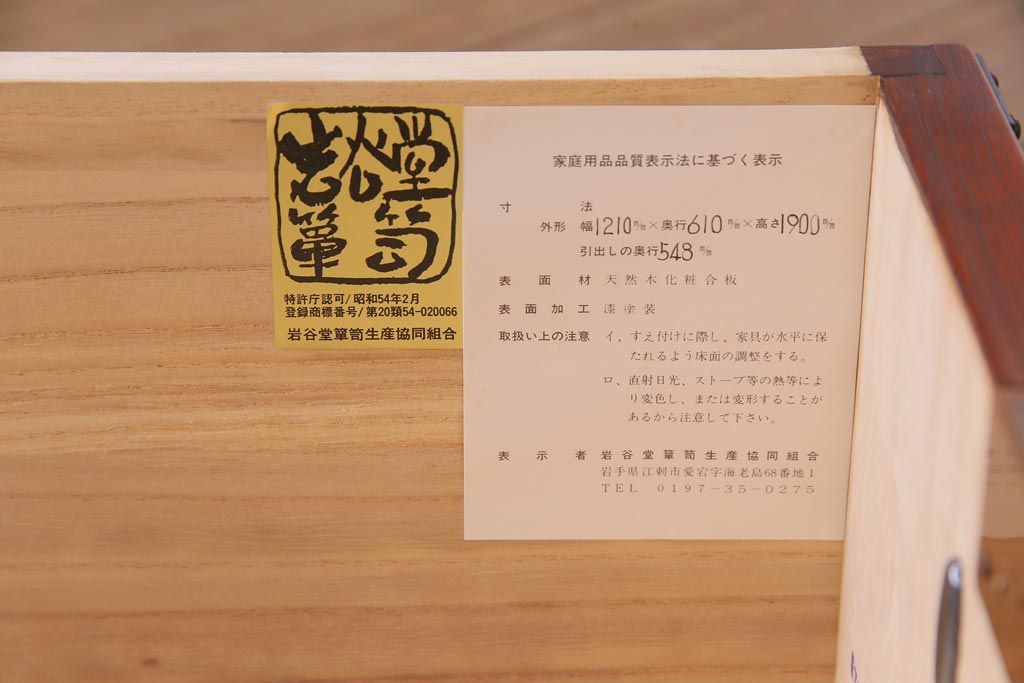 岩谷堂
箪笥
特許庁認可/昭和54年2月
登録商標番号/第20類54-020066
岩谷堂箪笥生産協同組合
家庭用品品質表示法に基づく表示
寸法
外形 幅1210㎜×奥行610㎜×高さ1900㎜
引出しの奥行548㎜
表面材 天然木化粧合板
表面加工 漆塗装
取扱い上の注意 イ、すえ付けに際し、家具が水平に保
たれるよう床面の調整をする。
ロ、直射日光、ストーブ等の熱等によ
り変色し、または変形することが
あるから注意して下さい。
表示者 岩谷堂箪笥生産協同組合
岩手県江刺市愛宕字海老島68番地1
TEL 0197-35-0275